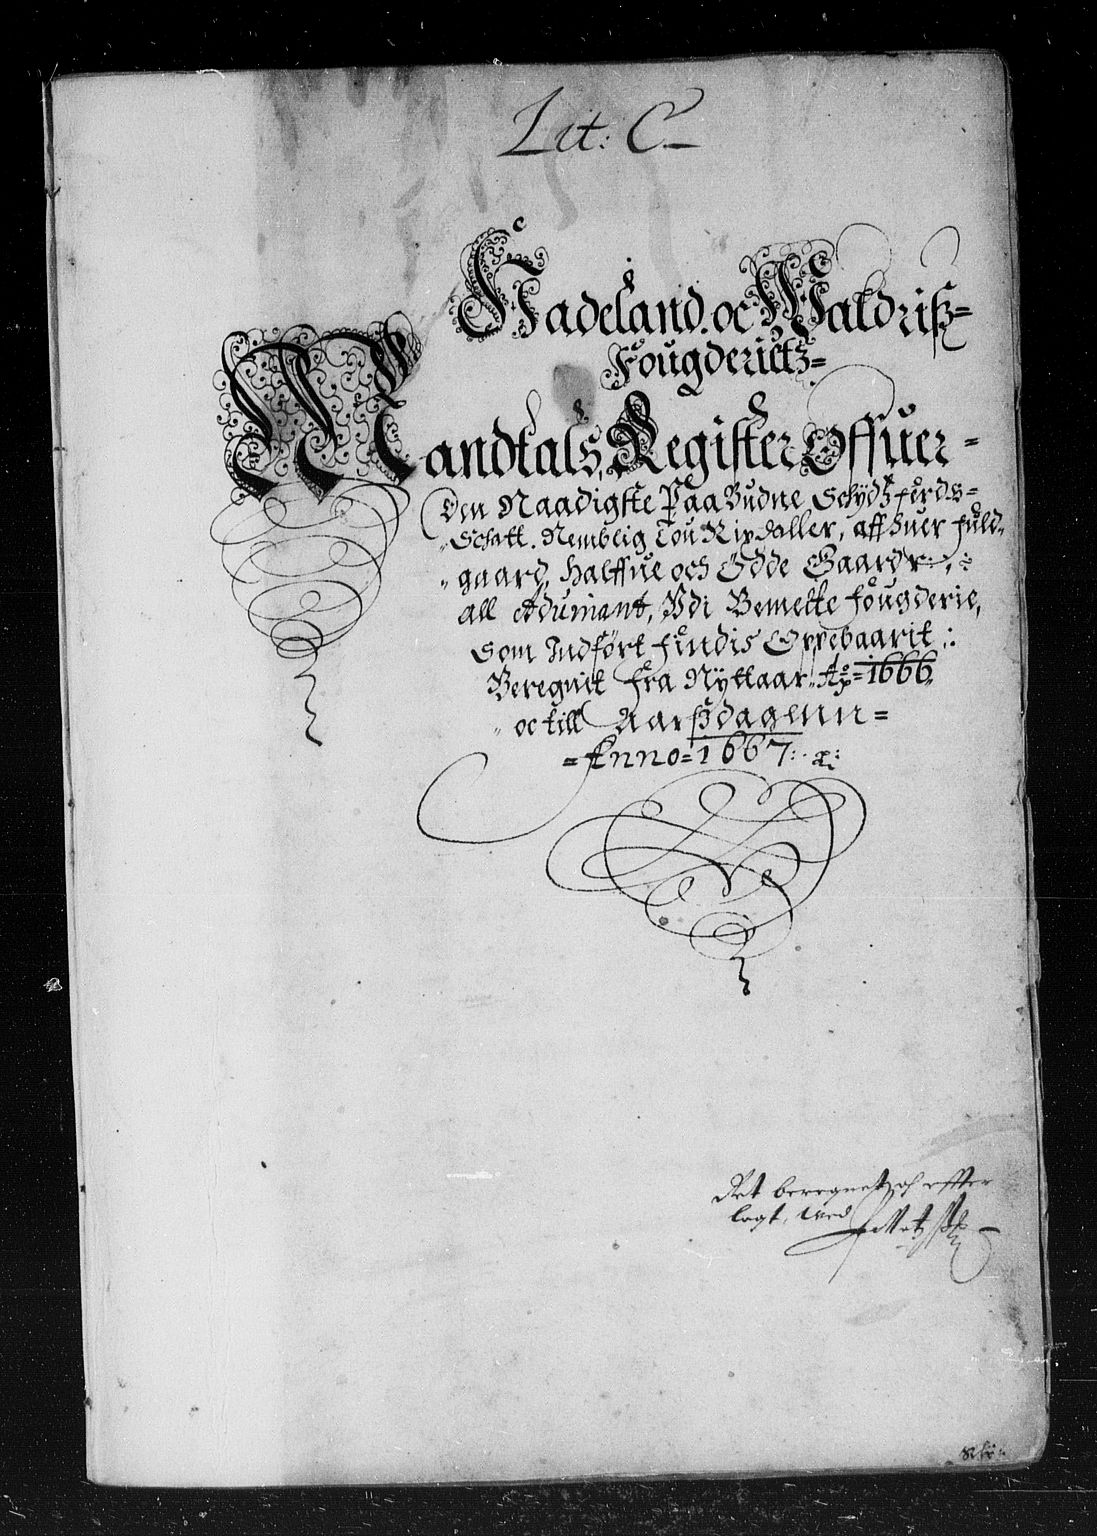 Lit: C.
Hadeland. oc Waldriß=
Fougderietz=
Mandtals, Register Offuer=
Den Naadigste Paa Budne Schydtzfærds=
Schatt. Nemblig Tou Rixdaller, aff huer fuld=
gaard, Halffue och Ödde Gaardr
all Aduinant, Udi Bemelte fougderie,
Som Indført findis Oppebaarit
Beregnit fra Nyttaar Ao= 1666
oc till Aarßdagenn=
=Anno=1667:
Ret beregnet och effter
lagt, Med